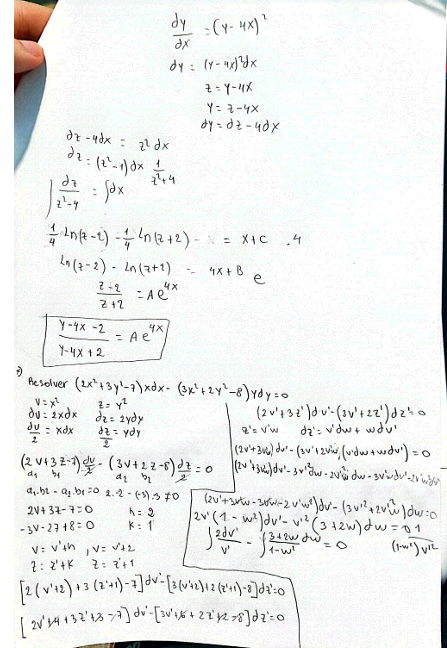 dy/dx = (y-4x)²
dy = (y-4x)²dx
z = y-4x
y = z-4x
dy = dz-4dx
dz-4dx = z²dx
dz = (z²-1)dx 1/z²+4
∫ dz/z²-4 = ∫dx
1/4 Ln(z-2) - 1/4 Ln(z+2) = x+c .4
Ln(z-2) - Ln(z+2) = 4x+B e
z-2/z+2 = A e^4x
y-4x-2/y-4x+2 = A e^4x
Resolver (2x²+3y²-7)xdx - (3x²+2y²-8)ydy=0
v=x² z=y²
dv=2xdx dz=2ydy
dv/2 = xdx dz/2 = ydy
(2v+3z-7)dv/2 - (3v+2z-8)dz/2 = 0
a₁ b₁ a₂ b₂
a₁.b₂ - a₂.b₁=0 2.2-(-3).3≠0
2v+3z-7=0 h=2
-3v-2z+8=0 k=1
v=v'+h, v=v'+2
z=z'+k z=z'+1
[2(v'+2)+3(z'+1)-7]dv'-[3(v'+2)+2(z'+1)-8]dz'=0
[2v'+4+3z'+3-7]dv'-[3v'+6+2z'+2-8]dz'=0
(2v'+3z')dv'-(3v'+2z')dz'=0
z'=v'w dz'=v'dw+wdv'
(2v'+3v'w)dv'-(3v'+2v'w)(v'dw+wdv')=0
(2v'+3v'w-3v'w-2v'w²)dv'-(3v'²+2v'²w)dw=0
2v'(1-w²)dv'-v'²(3+2w)dw=0 . 1/(1-w²)v'²
∫ 2dv'/v' - ∫ 3+2w dw/1-w² = 0